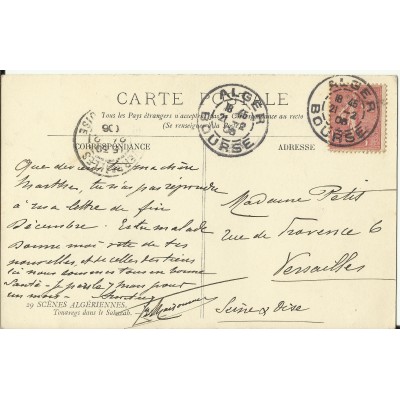 CARTE POSTALE
Tous les Pays étrangers n'acceptent pas la Correspondance au recto
(Se renseigner à la Poste)
CORRESPONDANCE
ADRESSE
ALGER
BOURSE
18 45
21 2
06
ALGER
BOURSE
18 45
21 2
06
Que devenez ma chère
Marthe, tu n'as pas répondu
à ma lettre de fin
Décembre. Es tu malade
Donne moi vite de tes
nouvelles, et de celles des tiens
Ici nous sommes tous en bonne
Santé -
un mois -
Madame Petit
rue de Provence 6
Versailles
Seine & Oise
29 SCÈNES ALGÉRIENNES.
Touaregs dans le Sahara.